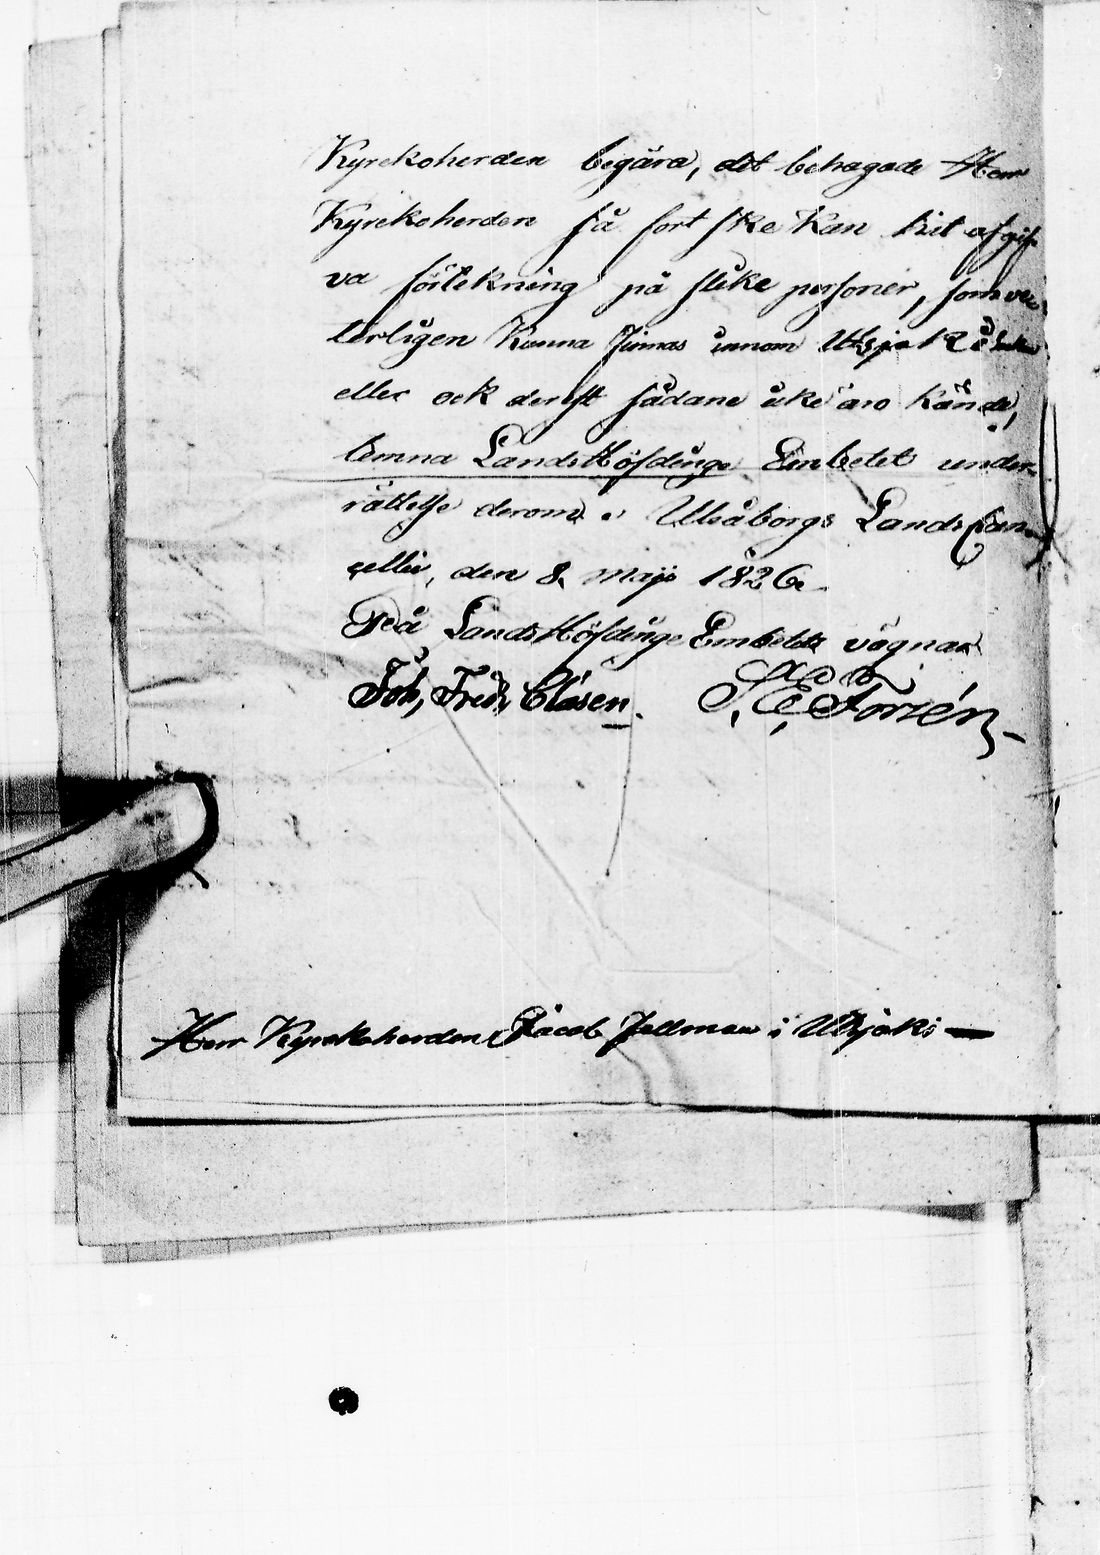 Kyrckoherden begära, det behagade Herr
Kyrckoherden så fort ske kan hit afgif-
va förtekning på slike personer, som ve-
terligen kunna finnas innom Utsjoki
eller ock derest sådane icke äro kände,
lemna LandsHöfdinge Embetet under-
rättelse derom. Uleåborgs LandsCan-
cellie, den 8 Maji 1826.
På LandsHöfdinge Embetets vägnar
Joh, Fredr, Clasen. S, E, Forzén
Herr Kyrckoherden Jacob Fellman i Utsjoki